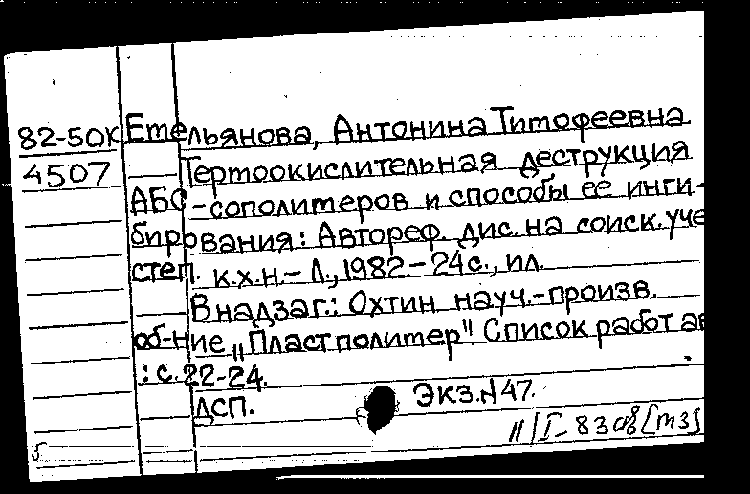 82-50К Емельянова, Антонина Тимофеевна
4507 Термоокислительная деструкция
АБС-сополимеров и способы ее инги-
бирования: Автореф. дис. на соиск. уче
степ. к.х.н.-Л., 1982-24с., ил.
В надзаг.: Охтин науч.-произв.
об-ние „Пластполимер" Список работ ав
: с.22-24.
ДСП. Экз.N47.
11/I-83